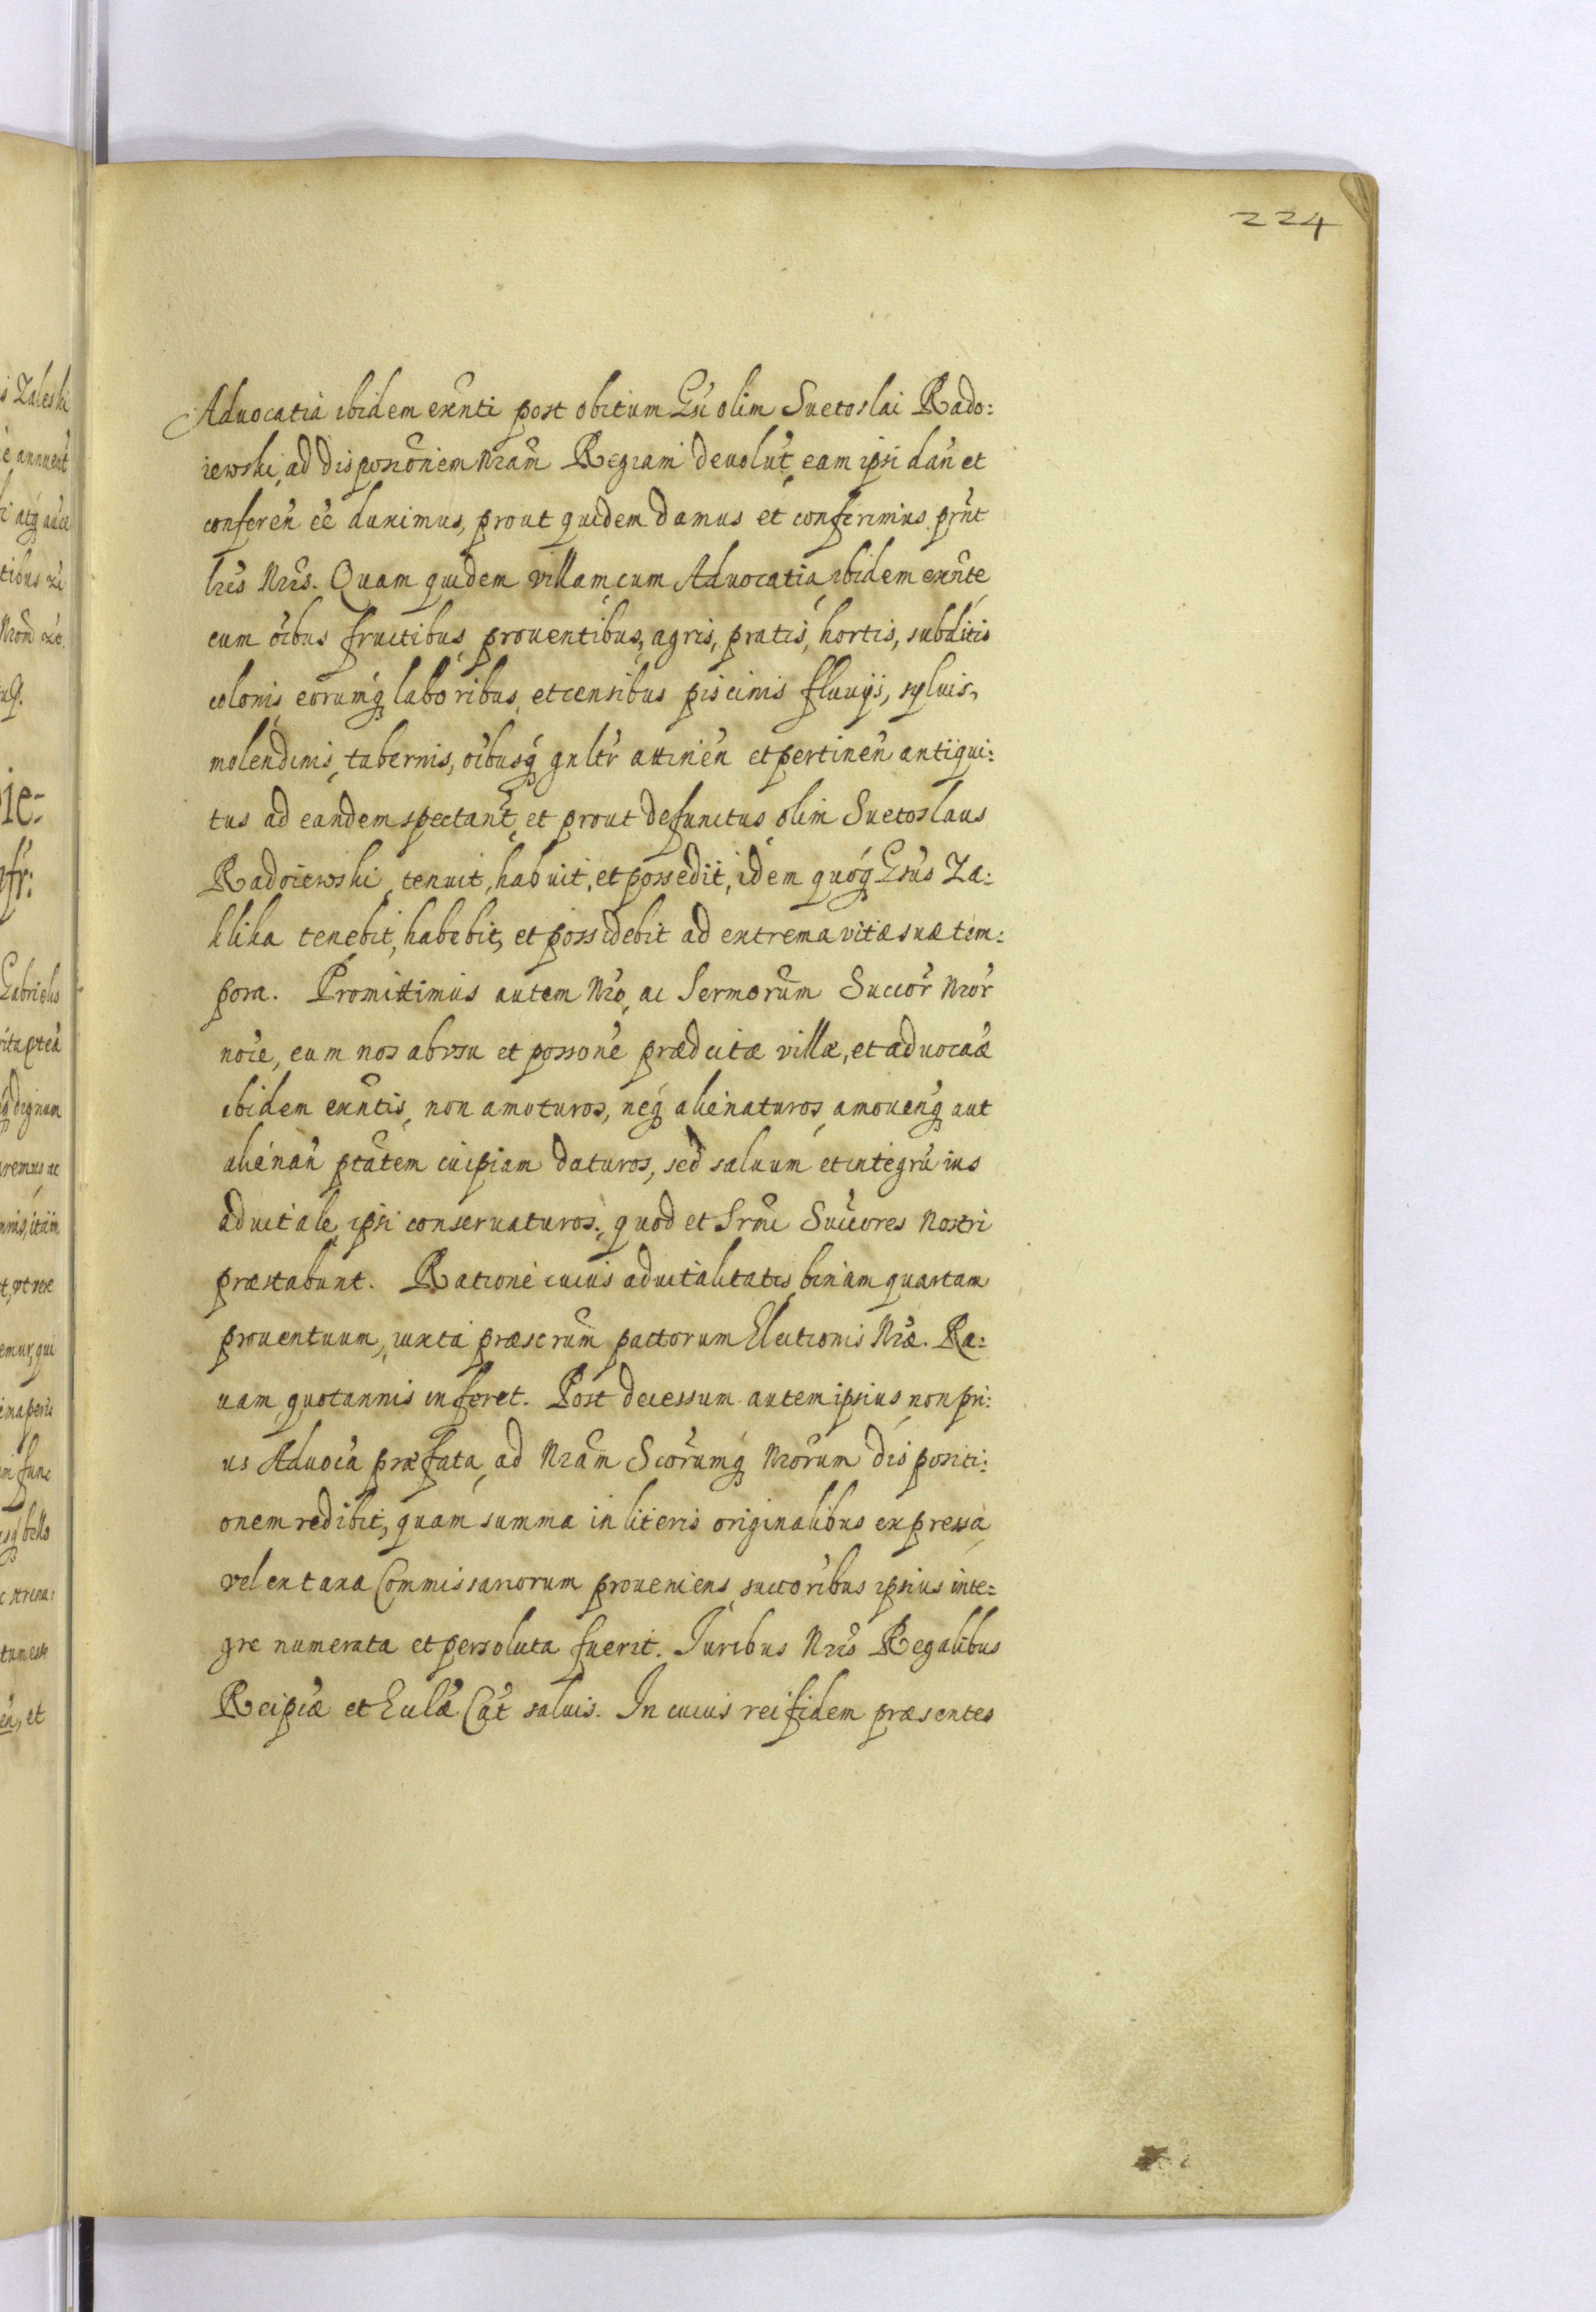 224
Aduocatia ibidem exñti post obitum Gsi olim Suetoslai Rado:
iewski, ad disposiõniem nrãm Regiam deuolut, eam ipsi dañ et
conferen ẽe duximus, prout quidem damus et conferimus prñt
lris Nris. Quam quidem villam, cum Aduocatia ibidem exñte,
cum oibus fructibus, prouentibus, agris, pratis, hortis, subditis
colonis, eorumq laboribus, et censibus piscinis fluuijs, syluis,
molendinis, tabernis, oibusq gnltr attineñ et pertineñ antiqui:
tus ad eandem spectant, et prout defunctus olim Suetoslaus
Radoiewski, tenuit, habuit, et possedit, idem quoq Gsus Za:
klika tenebit, habebit, et possidebit ad extrema vitæ suæ tem:
pora. Promittimus autem Nro, ac Sermorum Succor Nror
noie, eum nos ab vsu et possone prædictæ villæ, et aduocaæ
ibidem exñtis, non amoturos, neq alienaturos, amouenq aut
alienañ ptatem cuipiam daturos, sed saluum et integrũ ius
aduitale, ipsi conseruaturos; quod et Srmi Succores Nostri
præstabunt. Ratione cuius aduitalitatis, binam quartam
prouentuum, iuxta præscrum pactorum Electionis Nræ. Ra:
uam, quotannis inferet. Post decessum autem ipsius, non pri:
us Aduocia præfata, ad Nram Scorumq Nrorum dispositi:
onem redibit, quam summa in literis originalibus expressa,
vel ex taxa Commissariorum proueniens, succoribus ipsius inte:
gre numerata et persoluta fuerit. Iuribus Nris Regalibus
Reipcæ et Ecclæ Cat saluis. In cuius rei fidem præsentes